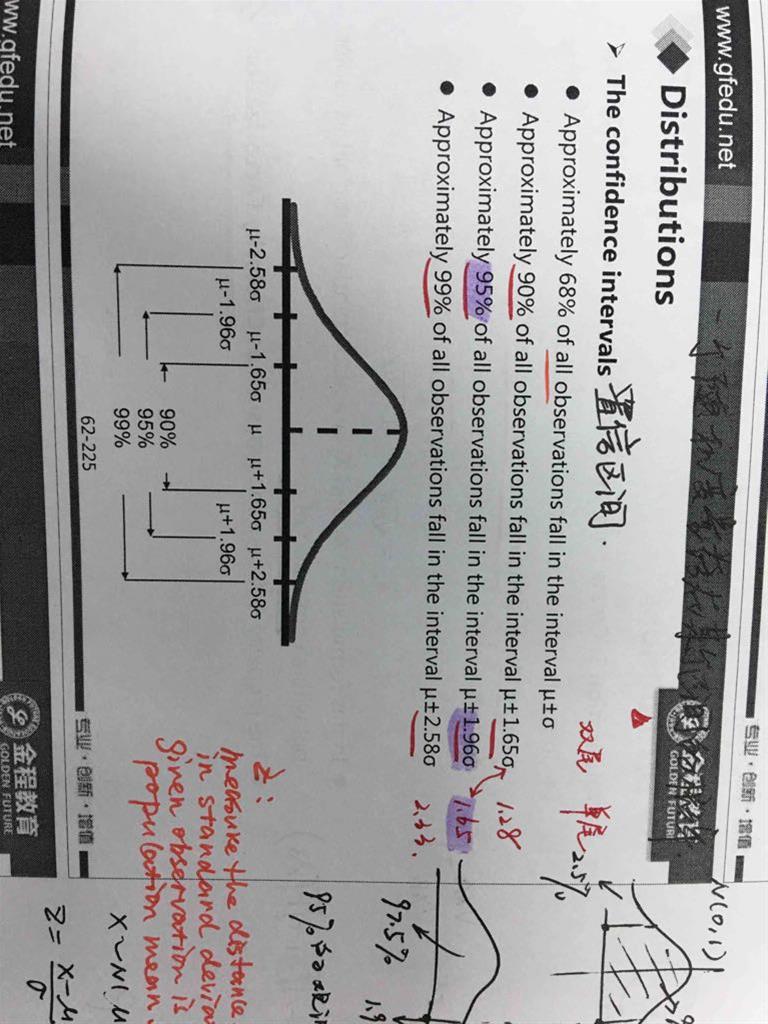 www.gfedu.net
Distributions
➢ The confidence intervals 置信区间.
● Approximately 68% of all observations fall in the interval μ±σ
双尾 单尾
● Approximately 90% of all observations fall in the interval μ±1.65σ 1.28
● Approximately 95% of all observations fall in the interval μ±1.96σ 1.65
● Approximately 99% of all observations fall in the interval μ±2.58σ 2.33.
μ-2.58σ μ-1.65σ μ μ+1.65σ μ+2.58σ
μ-1.96σ μ+1.96σ
90%
95%
99%
62-225
专业·创新·增值
N(0,1)
2.5%
97.5%
95%
z:
measure the distance
in standard devia
given observation is
population mean.
X~N(μ
z= x-μ
σ
www.gfedu.net
金程教育
GOLDEN FUTURE
专业·创新·增值